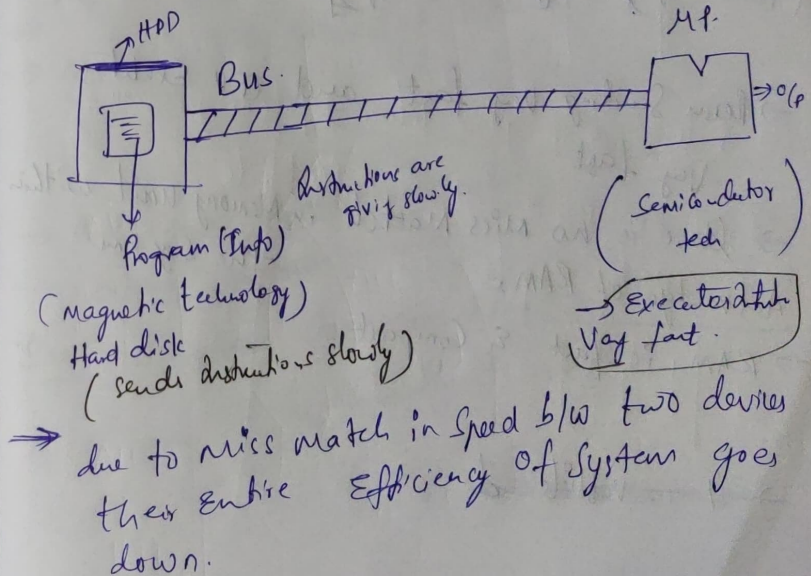 HDD
MP.
Bus.
→ O/P
Instructions are
giving slowly.
Program (Info)
(Magnetic technology)
Hard disk
(sends instructions slowly)
(Semiconductor
tech)
→
Very fast.
⇒ due to Miss Match in Speed b/w two devices
their Entire Efficiency Of System goes
down.